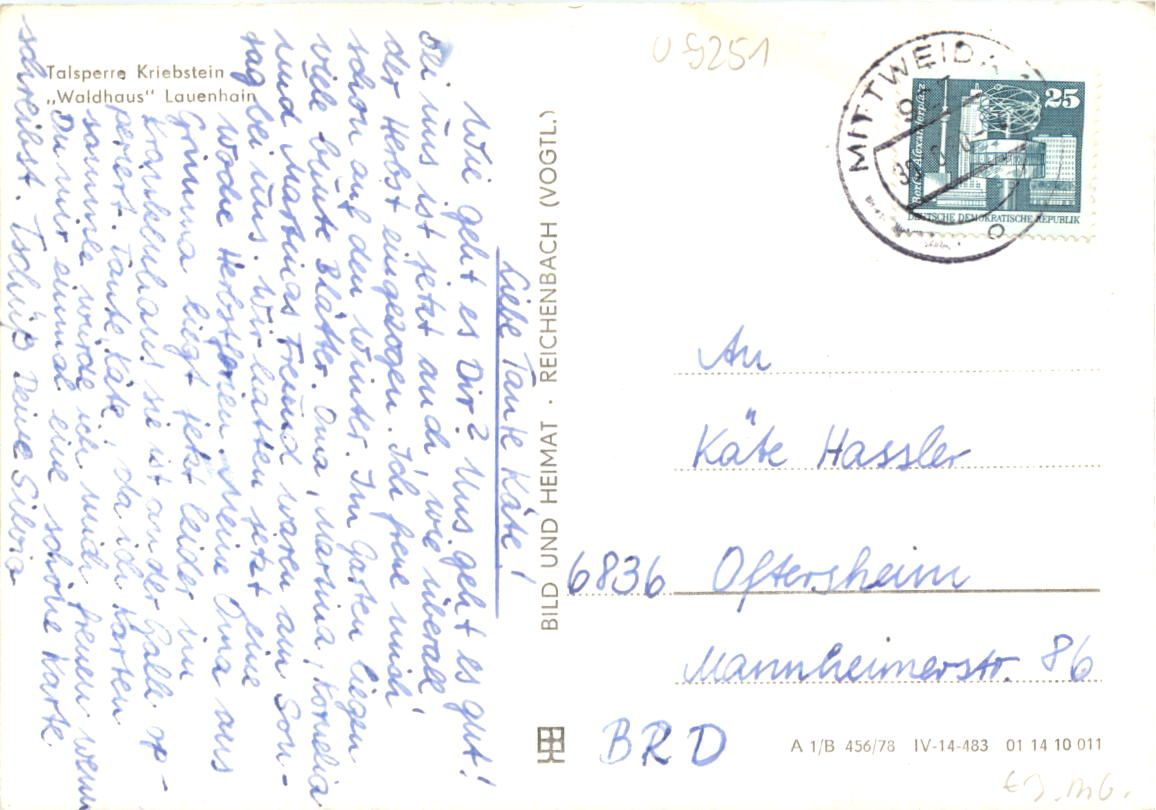 Talsperre Kriebstein
„Waldhaus" Lauenhain
Liebe Tante Käte!
Wie geht es Dir? Uns geht es gut!
Bei uns ist jetzt auch wie überall
der Herbst eingezogen. Ich freue mich
schon auf den Winter. Im Garten liegen
viele bunte Blätter. Oma, Martina, Kornelia
und Martinas Freund waren am Son-
tag bei uns. Wir hatten jetzt eine
Woche Herbstferien. Meine Oma aus
Grimma liegt jetzt leider im
Krankenhaus sie ist an der Galle op-
periert. Tante Käte, da ich Karten
sammle würde ich mich freuen wenn
Du mir einmal eine schöne Karte
schreibst. Tschüß Deine Silvia
BILD UND HEIMAT · REICHENBACH (VOGTL.)
09251
MITTWEIDA
25
Berlin, Alexanderplatz
DEUTSCHE DEMOKRATISCHE REPUBLIK
An
Käte Hassler
6836 Oftersheim
Mannheimerstr. 86
BRD
A 1/B 456/78 IV-14-483 01 14 10 011